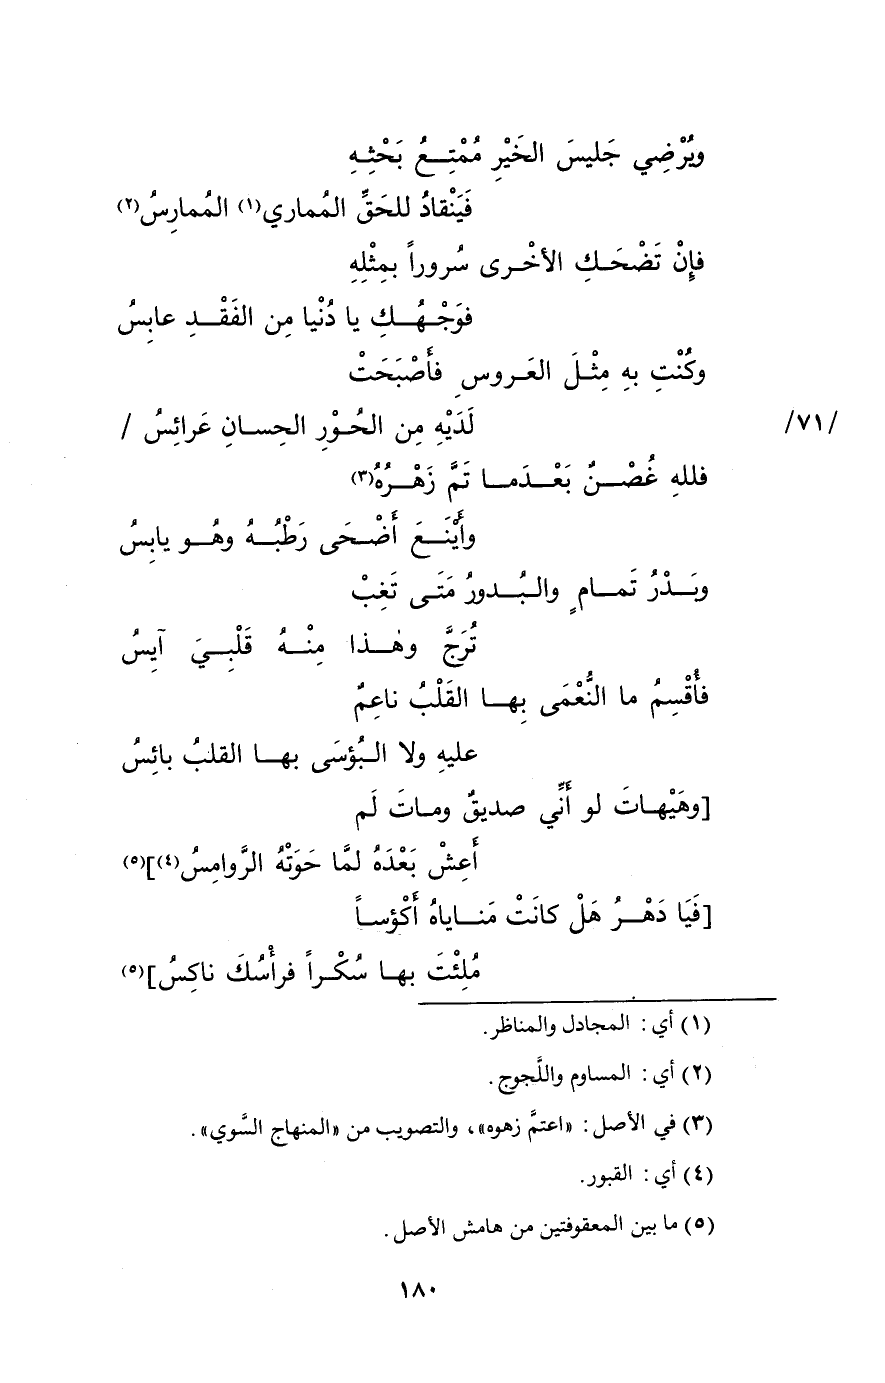 ويُرْضِي جَليسَ الخَيْرِ مُمْتِـعُ بَحْثِـهِ
فَيَنْقادُ للحَقِّ المُماري(١) المُمارِسُ(٢)
فإِنْ تَضْحَـكِ الأخْـرى سُروراً بمِثْلِهِ
فوَجْـهُـكِ يا دُنْيا مِن الفَقْـدِ عابِسُ
وكُنْتِ بهِ مِثْـلَ العَـروسِ فأَصْبَحَتْ
/٧١/ لَدَيْهِ مِن الحُـوْرِ الحِسـانِ عَرائِسُ /
فللهِ غُصْـنٌ بَعْـدَمـا تمَّ زَهْـرُهُ(٣)
وأَيْنَـعَ أَضْـحَى رَطْبُـهُ وهُـو يابِسُ
وبَـدْرُ تَمـامٍ والبُـدورُ مَتَـى تَغِبْ
تُرَجَّ وهٰـذا مِنْـهُ قَلْبِـيَ آيِسُ
فأُقْسِمُ ما النُّعْمَى بِهـا القَلْبُ ناعِمٌ
عليهِ ولا البُؤسَى بهـا القلبُ بائِسُ
[وهَيْهاتَ لو أَنِّي صديقٌ ومـاتَ لَم
أَعِشْ بَعْدَهُ لمَّا حَوَتْهُ الرَّوامِسُ(٤)](٥)
[فَيَا دَهْـرُ هَلْ كانَتْ مَنـاياهُ أَكْؤسـاً
مُلِئْتَ بهـا سُكْـراً فرأْسُكَ ناكِسُ](٥)
(١) أي: المجادل والمناظر.
(٢) أي: المساوم واللَّجوج.
(٣) في الأصل: «اعتمَّ زهوه»، والتصويب من «المنهاج السَّوي».
(٤) أي: القبور.
(٥) ما بين المعقوفتين من هامش الأصل.
١٨٠